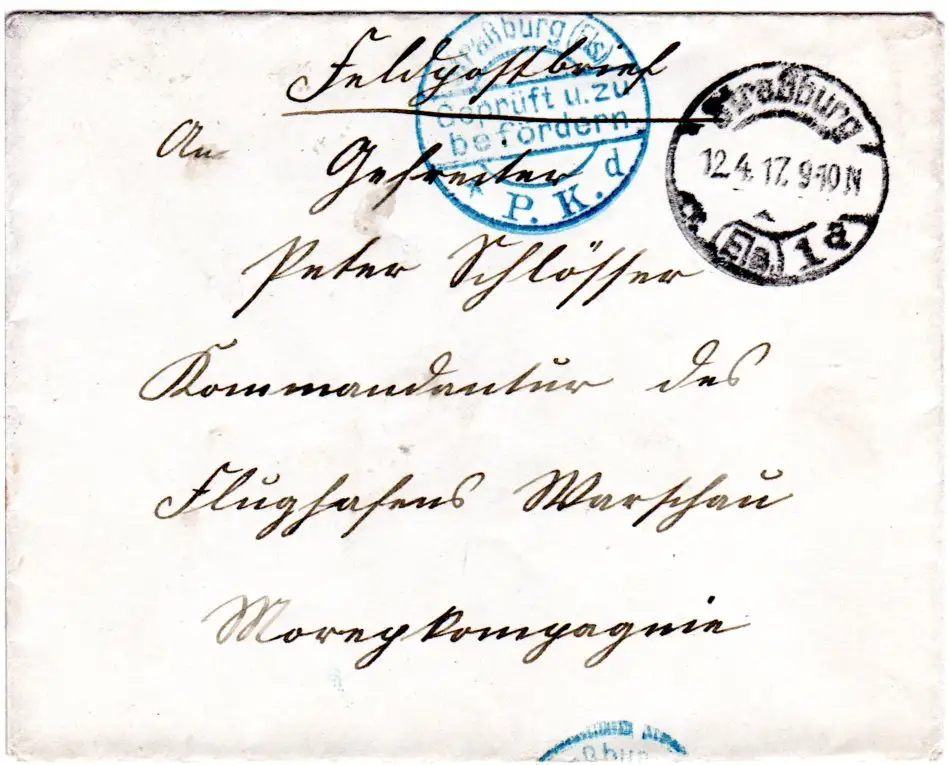 Feldpostbrief
An
Gefreiter
Peter Schlösser
Kommandantur des
Flughafens Warschau
Straßburg (Els)
Geprüft u. zu
befördern
P. K. d
Straßburg
12.4.17. 9-10 N
(Els.) 1 a